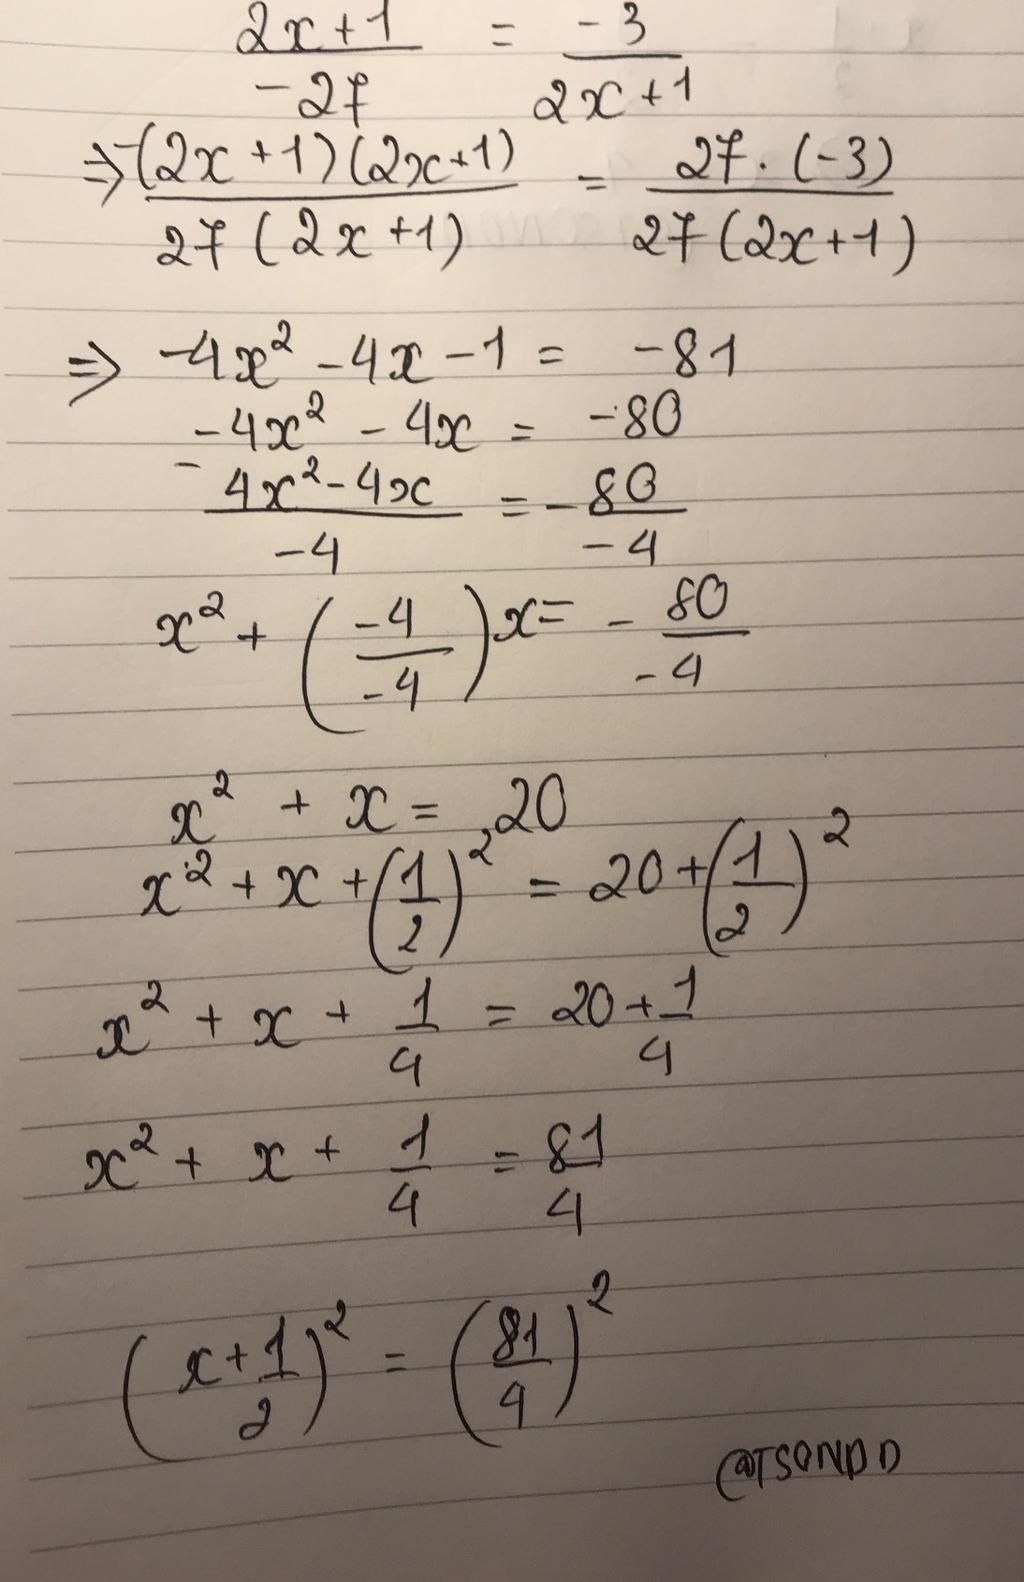 (2x+1)/(-27) = (-3)/(2x+1)
⇒ (-(2x+1)(2x+1))/(27(2x+1)) = (27·(-3))/(27(2x+1))
⇒ -4x² - 4x - 1 = -81
-4x² - 4x = -80
- (4x² - 4x)/(-4) = - 80/(-4)
x² + ((-4)/(-4))x = - 80/(-4)
x² + x = 20
x² + x + (1/2)² = 20 + (1/2)²
x² + x + 1/4 = 20 + 1/4
x² + x + 1/4 = 81/4
(x + 1/2)² = (81/4)²
@TSONDD